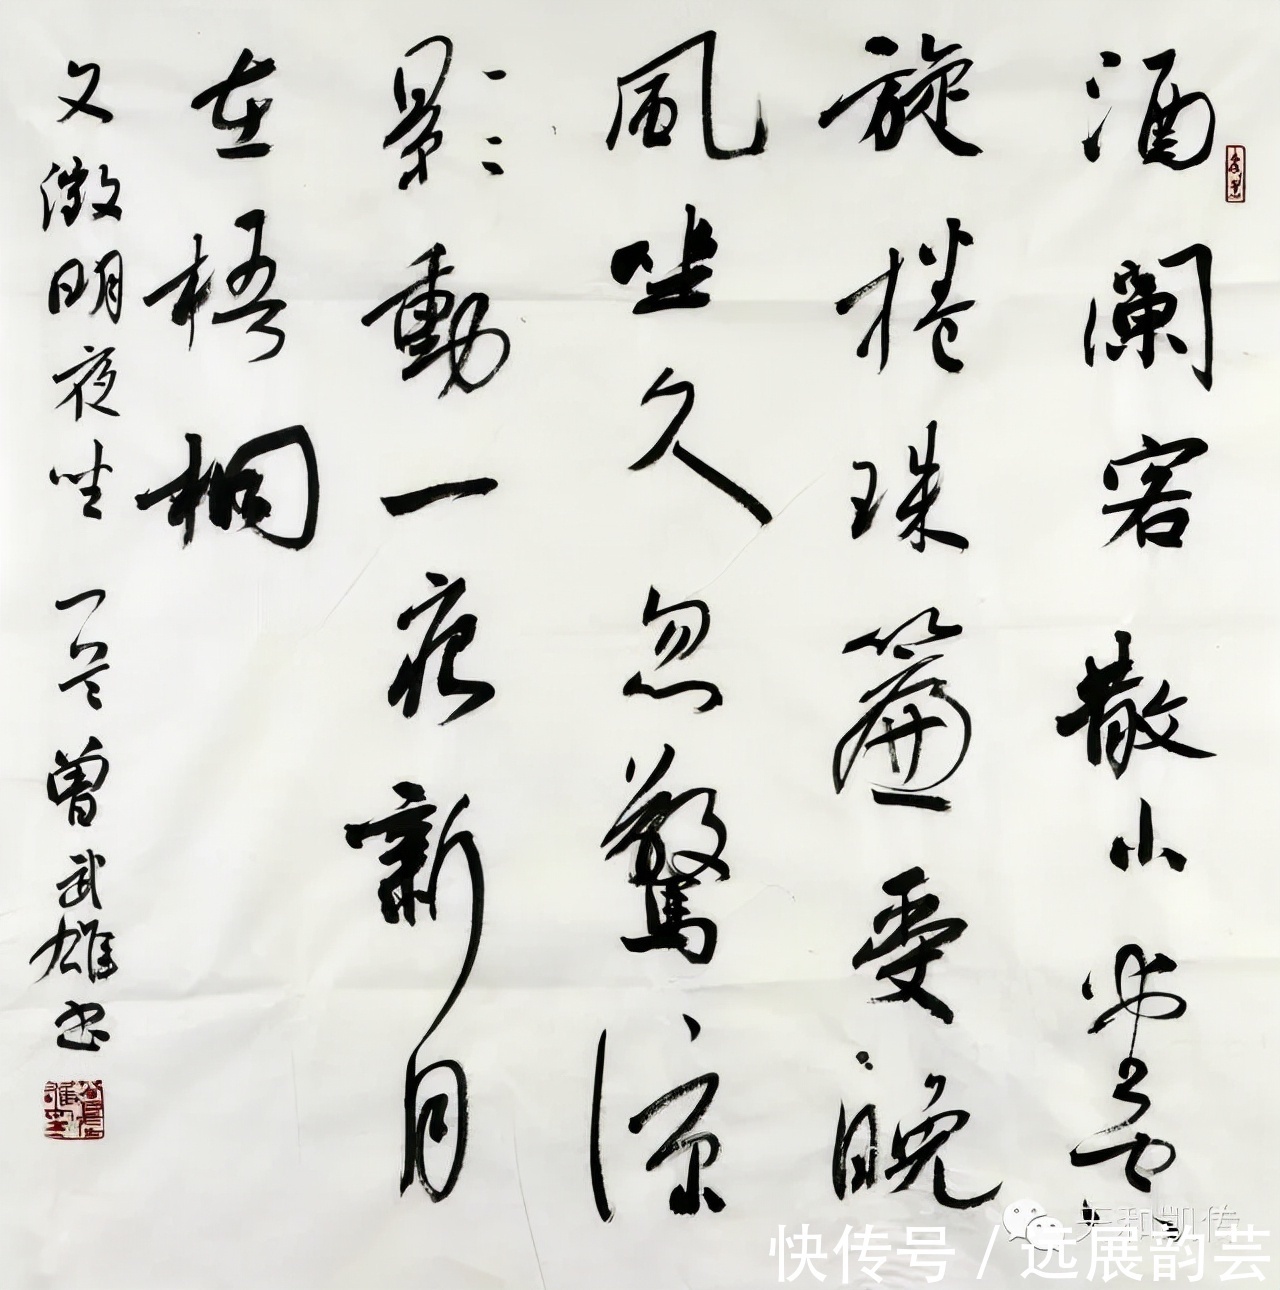 酒闌客散小堂空
旋捲珠簾受晚
風坐久忽驚涼
影動一痕新月
在梧桐
文徵明夜坐 一 曾武雄书
天和凯传
快传号 / 远展韵芸